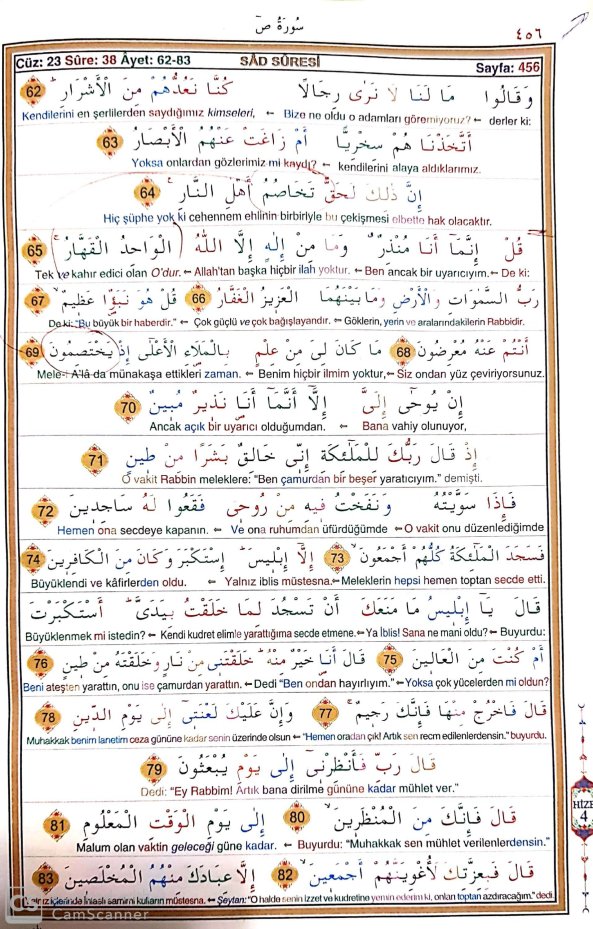 سُورَةُ صٓ ٤٥٦
Cüz: 23 Sûre: 38 Âyet: 62-83 SÂD SÛRESİ Sayfa: 456
وَقَالُوا مَا لَنَا لَا نَرٰى رِجَالًا كُنَّا نَعُدُّهُمْ مِنَ الْأَشْرَارِ 62
Kendilerini en şerlilerden saydığımız kimseleri, ⇐ Bize ne oldu o adamları göremiyoruz? ⇐ derler ki:
أَتَّخَذْنَا هُمْ سِخْرِيًّا أَمْ زَاغَتْ عَنْهُمُ الْأَبْصَارُ 63
Yoksa onlardan gözlerimiz mi kaydı? ⇐ kendilerini alaya aldıklarımız.
إِنَّ ذٰلِكَ لَحَقٌّ تَخَاصُمُ أَهْلِ النَّارِ 64
Hiç şüphe yok ki cehennem ehlinin birbiriyle bu çekişmesi elbette hak olacaktır.
قُلْ إِنَّمَٓا أَنَا مُنْذِرٌ وَمَا مِنْ إِلٰهٍ إِلَّا اللّٰهُ الْوَاحِدُ الْقَهَّارُ 65
Tek ve kahır edici olan O'dur. ⇐ Allah'tan başka hiçbir ilah yoktur. ⇐ Ben ancak bir uyarıcıyım. ⇐ De ki:
رَبُّ السَّمٰوَاتِ وَالْأَرْضِ وَمَا بَيْنَهُمَا الْعَزِيزُ الْغَفَّارُ 66 قُلْ هُوَ نَبَؤٌا عَظِيمٌ 67
De ki: "Bu büyük bir haberdir." ⇐ Çok güçlü ve çok bağışlayandır. ⇐ Göklerin, yerin ve aralarındakilerin Rabbidir.
أَنْتُمْ عَنْهُ مُعْرِضُونَ 68 مَا كَانَ لِيَ مِنْ عِلْمٍ بِالْمَلَإِ الْأَعْلٰٓى إِذْ يَخْتَصِمُونَ 69
Mele-i A'lâ da münakaşa ettikleri zaman. ⇐ Benim hiçbir ilmim yoktur, ⇐ Siz ondan yüz çeviriyorsunuz.
إِنْ يُوحٰٓى إِلَيَّ إِلَّٓا أَنَّمَٓا أَنَا نَذِيرٌ مُبِينٌ 70
Ancak açık bir uyarıcı olduğumdan. ⇐ Bana vahiy olunuyor,
إِذْ قَالَ رَبُّكَ لِلْمَلٰٓئِكَةِ إِنِّي خَالِقٌ بَشَرًا مِنْ طِينٍ 71
O vakit Rabbin meleklere: "Ben çamurdan bir beşer yaratıcıyım." demişti.
فَإِذَا سَوَّيْتُهُ وَنَفَخْتُ فِيهِ مِنْ رُوحِي فَقَعُوا لَهُ سَاجِدِينَ 72
Hemen ona secdeye kapanın. ⇐ Ve ona ruhumdan üfürdüğümde ⇐ O vakit onu düzenlediğimde
فَسَجَدَ الْمَلٰٓئِكَةُ كُلُّهُمْ أَجْمَعُونَ 73 إِلَّٓا إِبْلِيسَ إِسْتَكْبَرَ وَكَانَ مِنَ الْكَافِرِينَ 74
Büyüklendi ve kâfirlerden oldu. ⇐ Yalnız iblis müstesna. ⇐ Meleklerin hepsi hemen toptan secde etti.
قَالَ يَٓا إِبْلِيسُ مَا مَنَعَكَ أَنْ تَسْجُدَ لِمَا خَلَقْتُ بِيَدَيَّ أَسْتَكْبَرْتَ
Büyüklenmek mi istedin? ⇐ Kendi kudret elimle yarattığıma secde etmene. ⇐ Ya İblis! Sana ne mani oldu? ⇐ Buyurdu:
أَمْ كُنْتَ مِنَ الْعَالِينَ 75 قَالَ أَنَا خَيْرٌ مِنْهُ خَلَقْتَنِي مِنْ نَارٍ وَخَلَقْتَهُ مِنْ طِينٍ 76
Beni ateşten yarattın, onu ise çamurdan yarattın. ⇐ Dedi "Ben ondan hayırlıyım." ⇐ Yoksa çok yücelerden mi oldun?
قَالَ فَاخْرُجْ مِنْهَا فَإِنَّكَ رَجِيمٌ 77 وَإِنَّ عَلَيْكَ لَعْنَتِٓي إِلٰى يَوْمِ الدِّينِ 78
Muhakkak benim lanetim ceza gününe kadar senin üzerinde olsun ⇐ "Hemen oradan çık! Artık sen recm edilenlerdensin." buyurdu.
قَالَ رَبِّ فَأَنْظِرْنِٓي إِلٰى يَوْمِ يُبْعَثُونَ 79
Dedi: "Ey Rabbim! Artık bana dirilme gününe kadar mühlet ver."
قَالَ فَإِنَّكَ مِنَ الْمُنْظَرِينَ 80 إِلٰى يَوْمِ الْوَقْتِ الْمَعْلُومِ 81
Malum olan vaktin geleceği güne kadar. ⇐ Buyurdu: "Muhakkak sen mühlet verilenlerdensin."
قَالَ فَبِعِزَّتِكَ لَأُغْوِيَنَّهُمْ أَجْمَعِينَ 82 إِلَّا عِبَادَكَ مِنْهُمُ الْمُخْلَصِينَ 83
içlerinde ihlaslı samimi kulların müstesna. ⇐ Şeytan: "O halde senin izzet ve kudretine yemin ederim ki, onları toptan azdıracağım." dedi.
HİZB
4
CS CamScanner